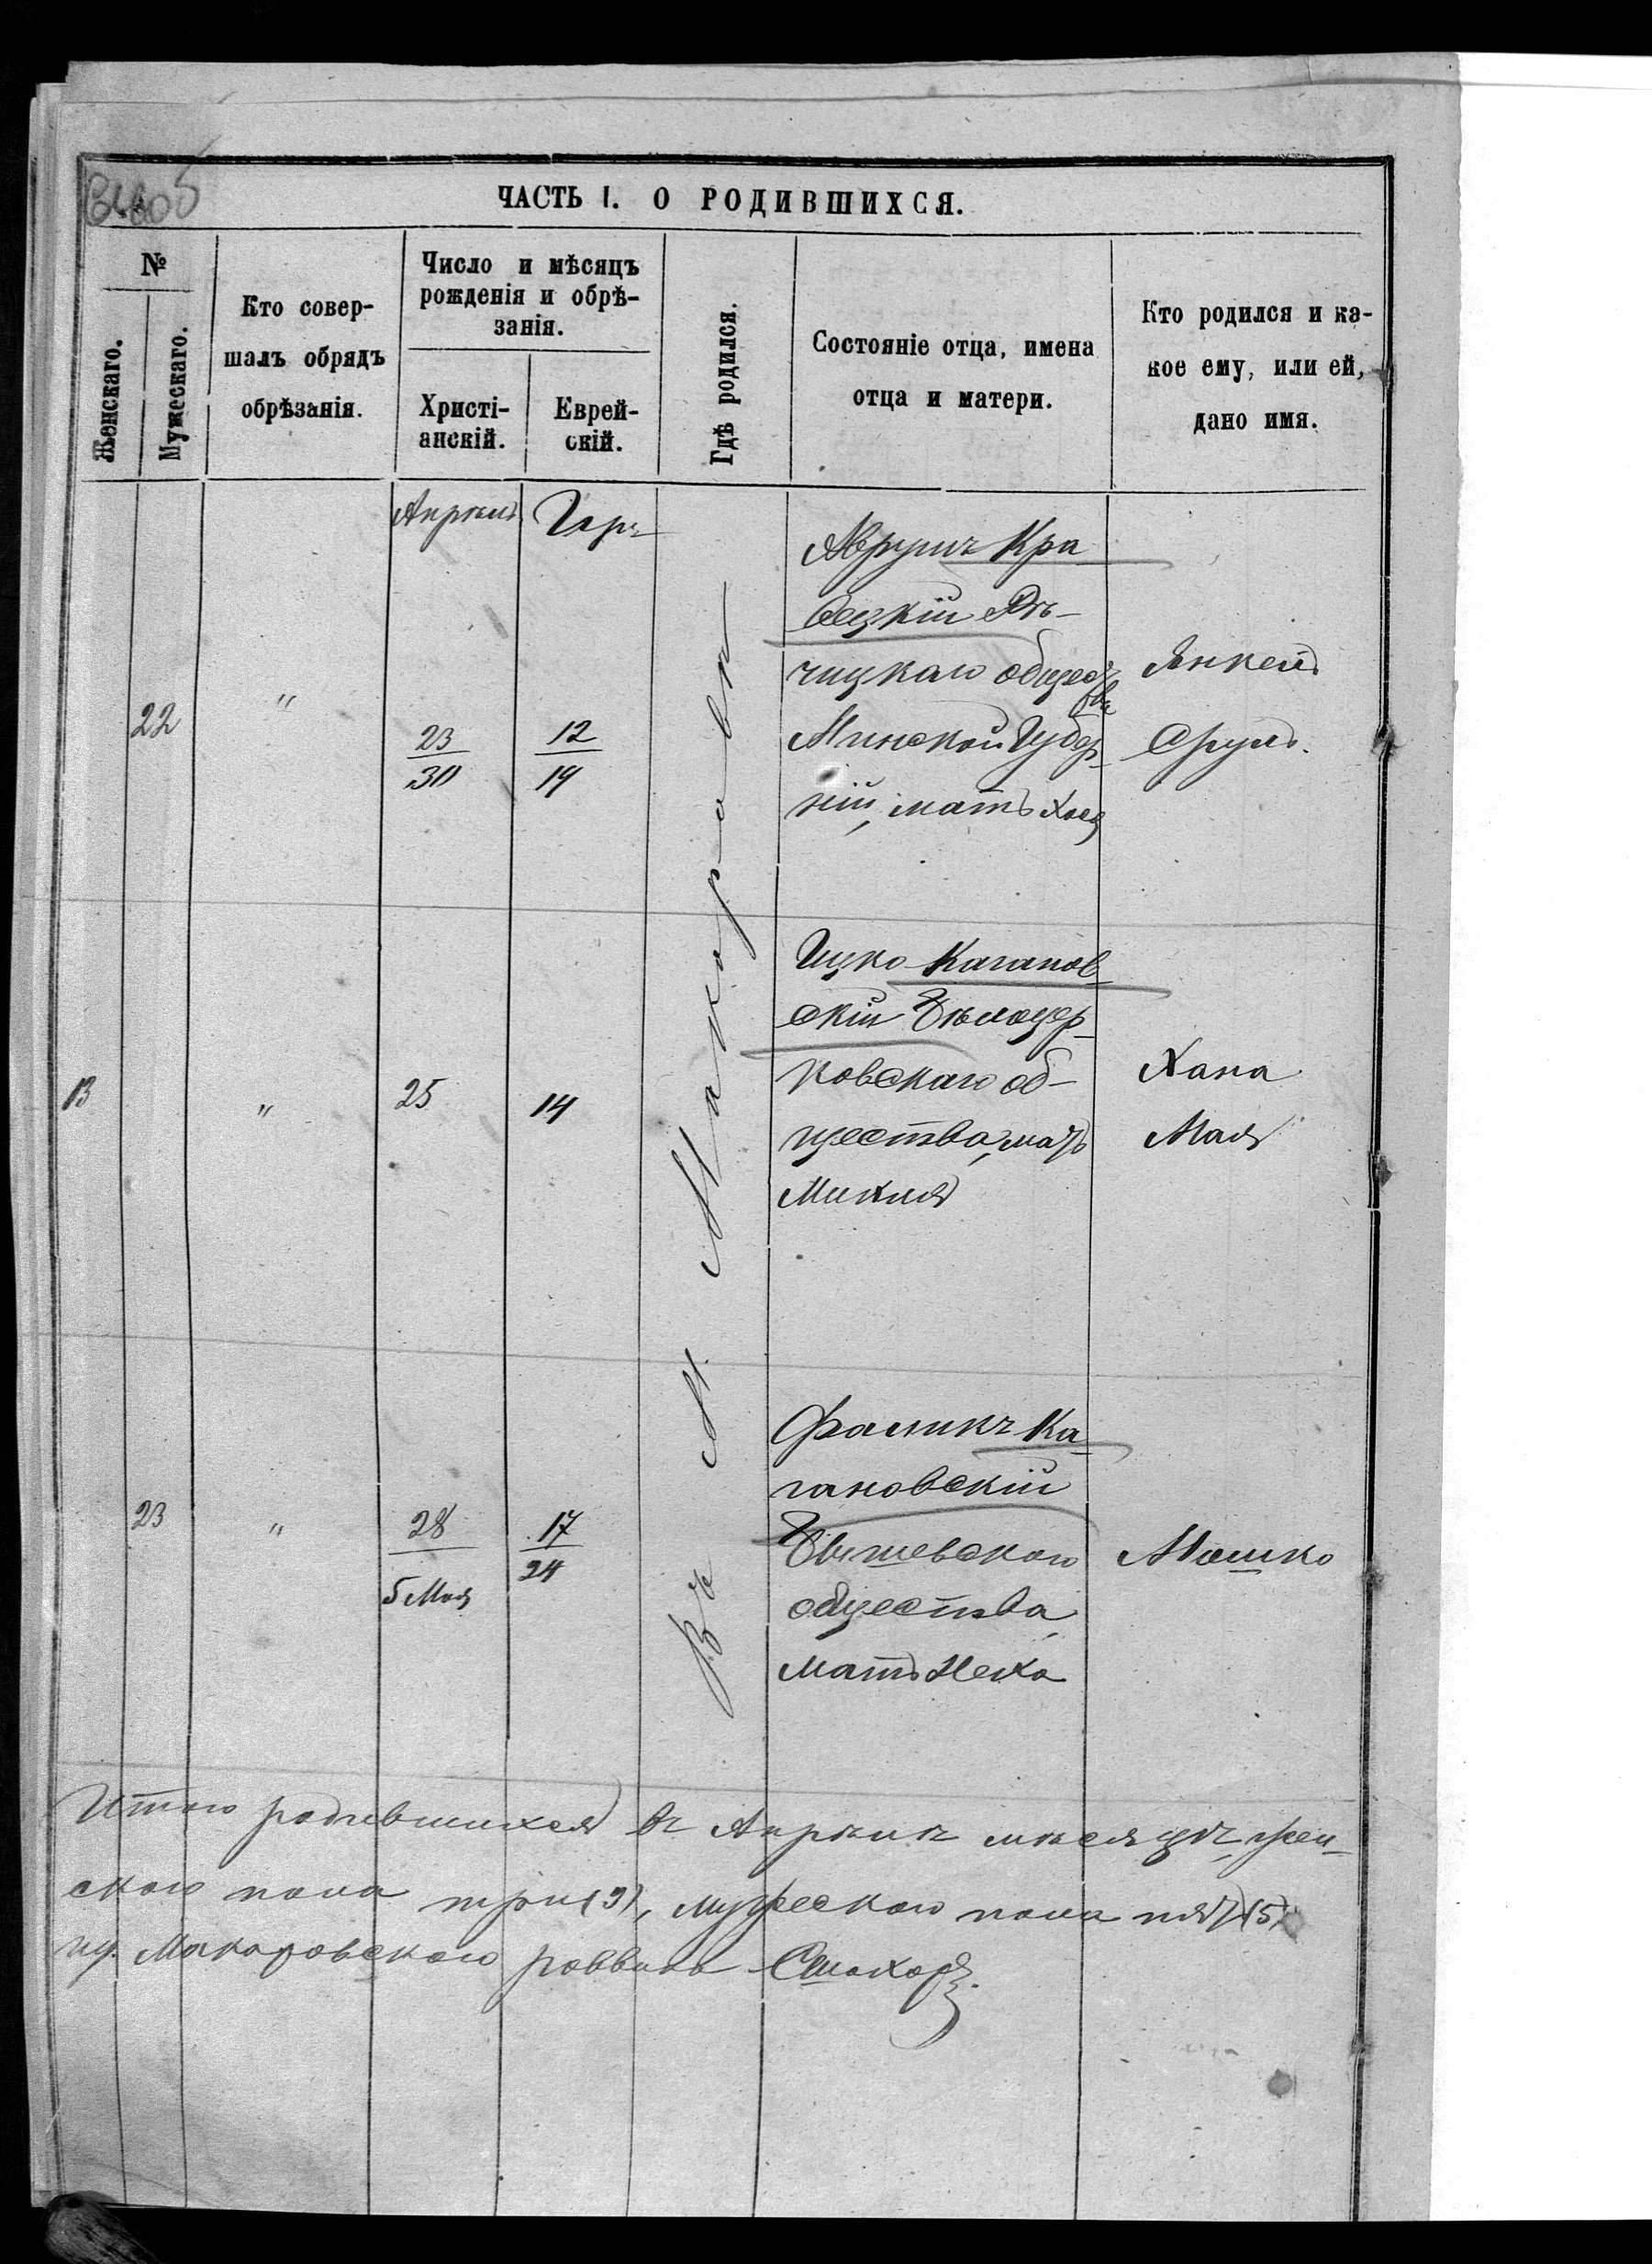 ЧАСТЬ I. О РОДИВШИХСЯ.
№
Женскаго.
Мужескаго.
Кто совер-
шалъ обрядъ
обрѣзанія.
Число и мѣсяцъ
рожденія и обрѣ-
занія.
Христі-
анскій.
Еврей-
скій.
Гдѣ родился.
Состояніе отца, имена
отца и матери.
Кто родился и ка-
кое ему, или ей,
дано имя.
Апрѣль
Іаръ
Въ М. Макаровѣ
22
"
23
30
12
19
Аврумъ Кра
сецкій Рѣ-
чицкаго общест
ва
Минской Губер
ніи, мать Хая
Янкель
Сруль.
13
"
25
14
Ицко Каганов
скій Бѣлоцер
ковскаго об-
щества, мать
Миндля
Хана
Мая
23
"
28
5 Мая
17
24
Фаликъ Ка
гановскій
Бышевскаго
общества,
мать Неха
Мошко
Итого родившихся въ Апрѣлѣ мѣсяцѣ, жен-
скаго пола три (3), мужескаго пола пять (5)
Макаровского раввина